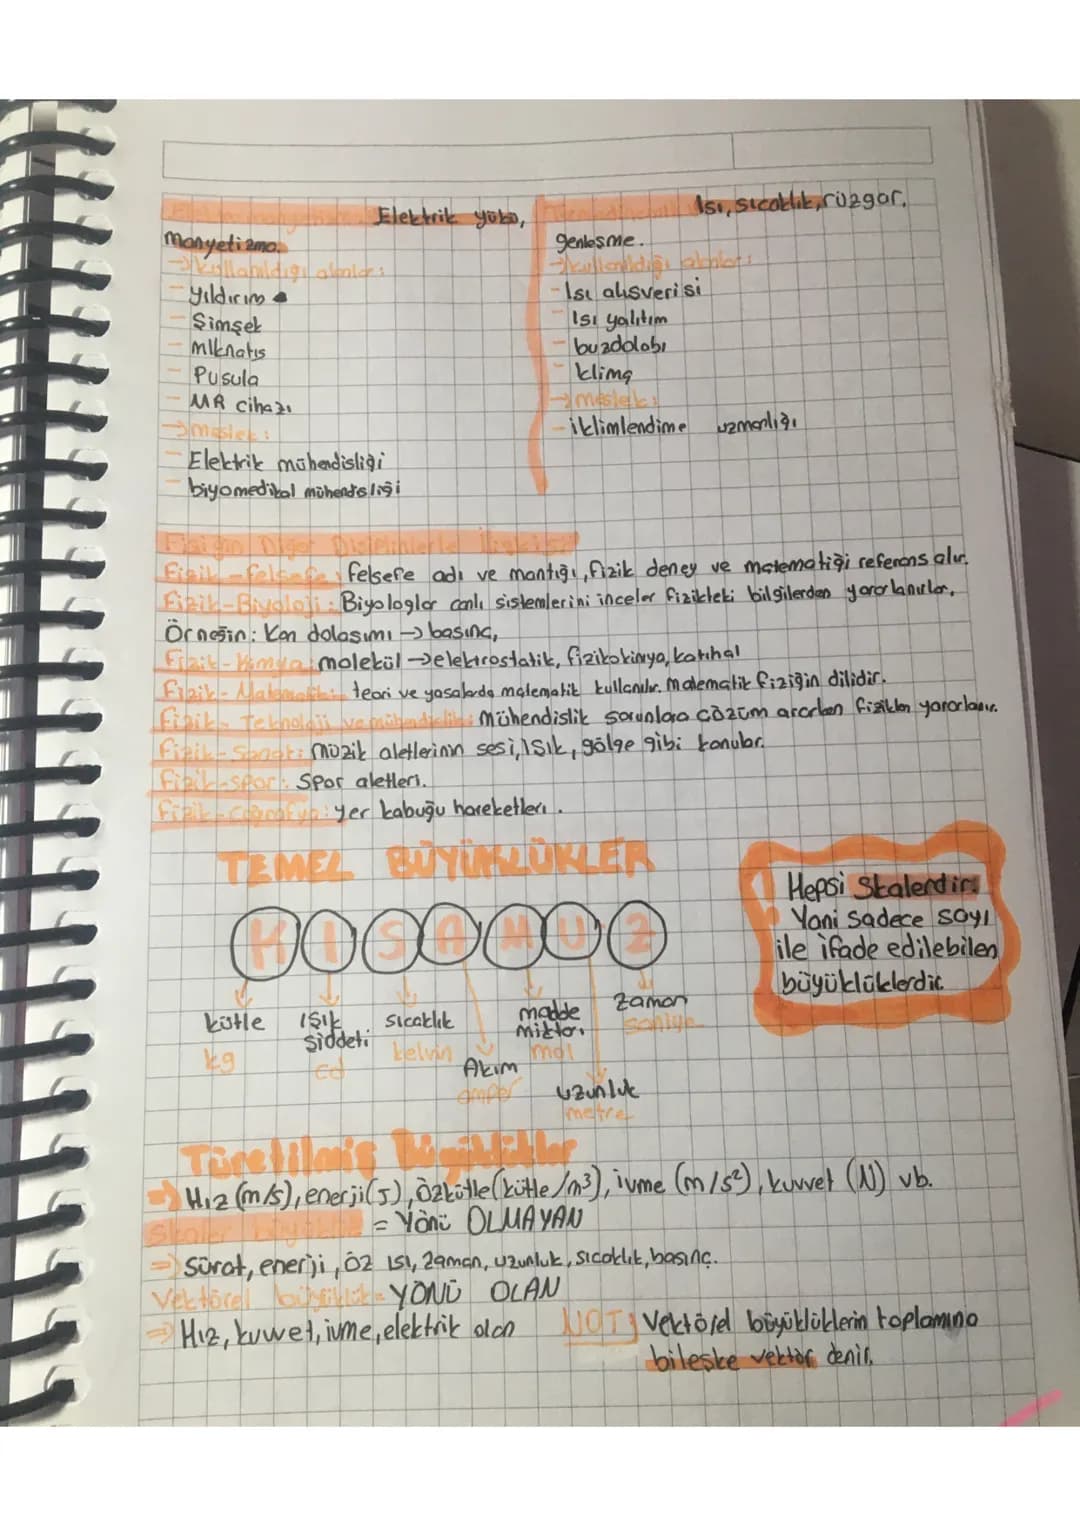 Elektrik yükü,
manyetizma.
→ kullanıldığı alanlar:
- yıldırım
- Şimşek
- mıknatıs
- Pusula
- MR cihazı
→ meslek:
- Elektrik mühendisliği
- biyomedikal mühendisliği
Isı, sıcaklık, rüzgar,
genleşme.
→ kullanıldığı alanlar:
- Isı alışverişi
- ISI yalıtım
- buzdolabı
- klima
→ meslek:
- iklimlendime uzmanlığı
Fiziğin Diğer Disiplinlerle İlişkisi
Fizik-felsefe: felsefe adı ve mantığı, fizik deney ve matematiği referans alır.
Fizik-Biyoloji: Biyologlar canlı sistemlerini inceler fizikteki bilgilerden yararlanırlar.
Örneğin: Kan dolaşımı → basınç,
Fizik-Kimya: molekül → elektrostatik, fizikokimya, katıhal
Fizik-Matematik: teori ve yasalarda matematik kullanılır. Matematik fiziğin dilidir.
Fizik-Teknoloji ve mühendislik: Mühendislik sorunlara çözüm ararken fizikten yararlanır.
Fizik-Sanat: müzik aletlerinin sesi, ışık, gölge gibi konular.
Fizik-spor: Spor aletleri.
Fizik-coğrafya: yer kabuğu hareketleri.
TEMEL BÜYÜKLÜKLER
K I S A M U Z
kütle ışık şiddeti sıcaklık Akım madde miktarı uzunluk zaman
kg cd kelvin amper mol metre saniye
! Hepsi Skalerdir.
Yani sadece sayı
ile ifade edilebilen
büyüklüklerdir.
Türetilmiş Büyüklükler
→ Hız (m/s), enerji(J), özkütle(kütle/m³), ivme (m/s²), kuvvet (N) vb.
Skaler büyüklük = Yönü OLMAYAN
⇒ Sürat, enerji, öz ısı, zaman, uzunluk, sıcaklık, basınç.
Vektörel büyüklük = YÖNÜ OLAN
⇒ Hız, kuvvet, ivme, elektrik alan
NOT: Vektörel büyüklüklerin toplamına
bileşke vektör denir.